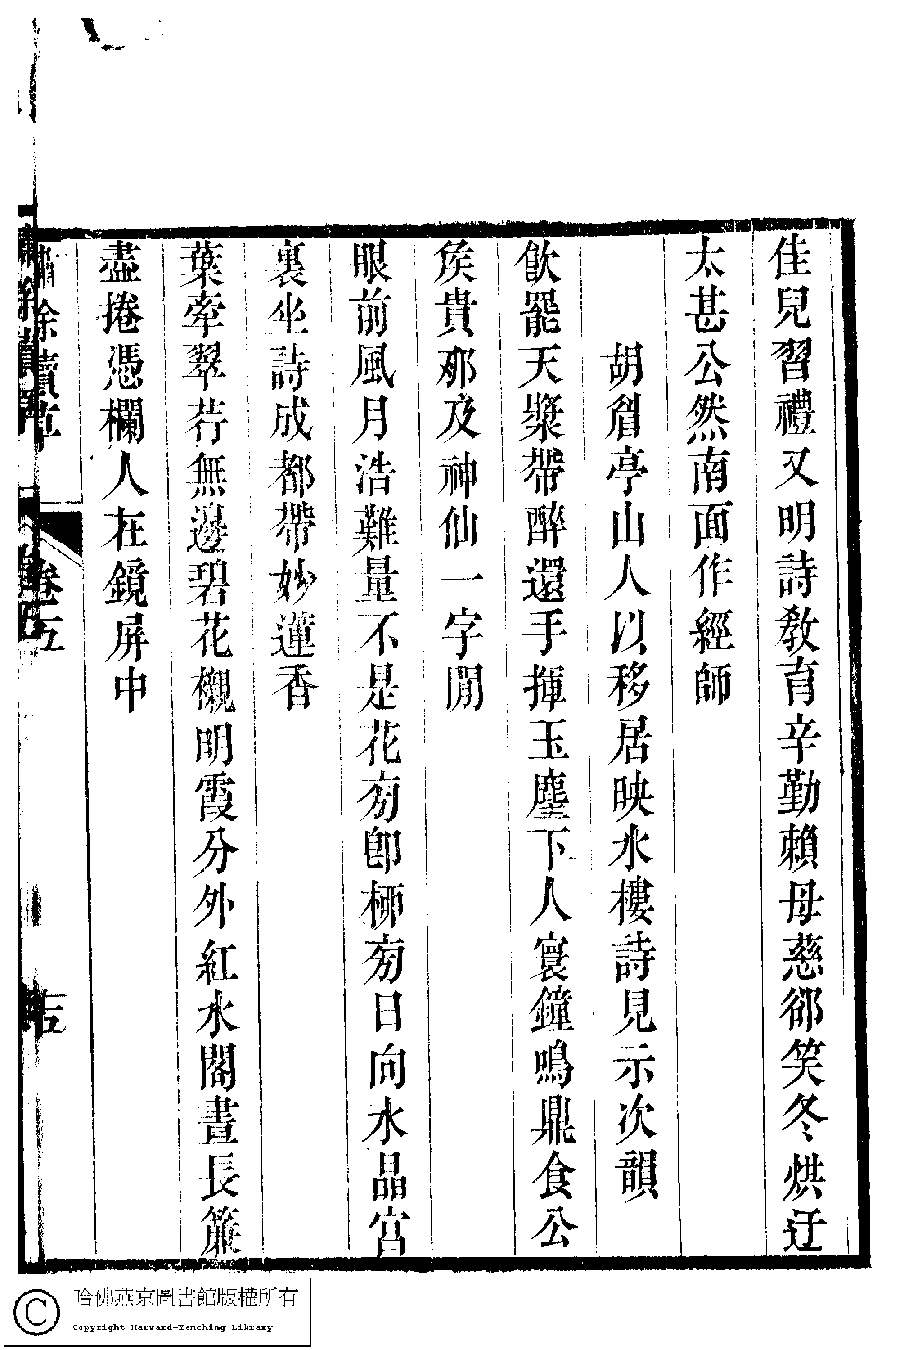 佳兒習禮又明詩教育辛勤賴母慈郤笑冬烘迂
太甚公然南面作經師
胡眉亭山人以移居映水樓詩見示次韻
飲罷天漿帶醉還手揮玉麈下人寰鐘鳴鼎食公
矦貴那及神仙一字閒
眼前風月浩難量不是花南卽桺南日向水晶宮
裏坐詩成都帶妙蓮香
葉牽翠荇無邊碧花櫬明霞分外紅水閣晝長簾
盡捲憑欄人在鏡屏中
餘續草
卷五
哈佛燕京圖書館版權所有
Copyright Harvard-Yenching Library